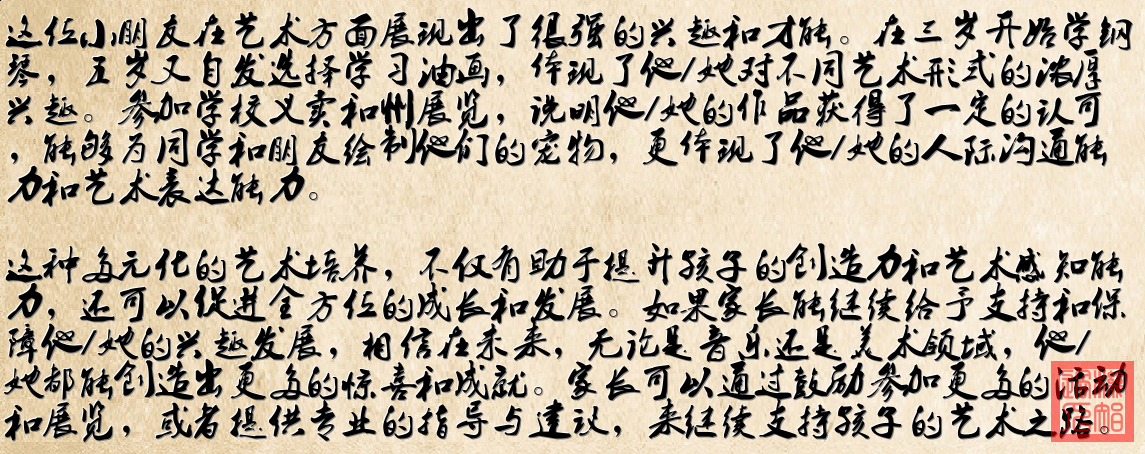 这位小朋友在艺术方面展现出了很强的兴趣和才能。在三岁开始学钢
琴，五岁又自发选择学习油画，体现了他/她对不同艺术形式的浓厚
兴趣。参加学校义卖和州展览，说明他/她的作品获得了一定的认可
，能够为同学和朋友绘制他们的宠物，更体现了他/她的人际沟通能
力和艺术表达能力。
这种多元化的艺术培养，不仅有助于提升孩子的创造力和艺术感知能
力，还可以促进全方位的成长和发展。如果家长能继续给予支持和保
障他/她的兴趣发展，相信在未来，无论是音乐还是美术领域，他/
她都能创造出更多的惊喜和成就。家长可以通过鼓励参加更多的活动
和展览，或者提供专业的指导与建议，来继续支持孩子的艺术之路。